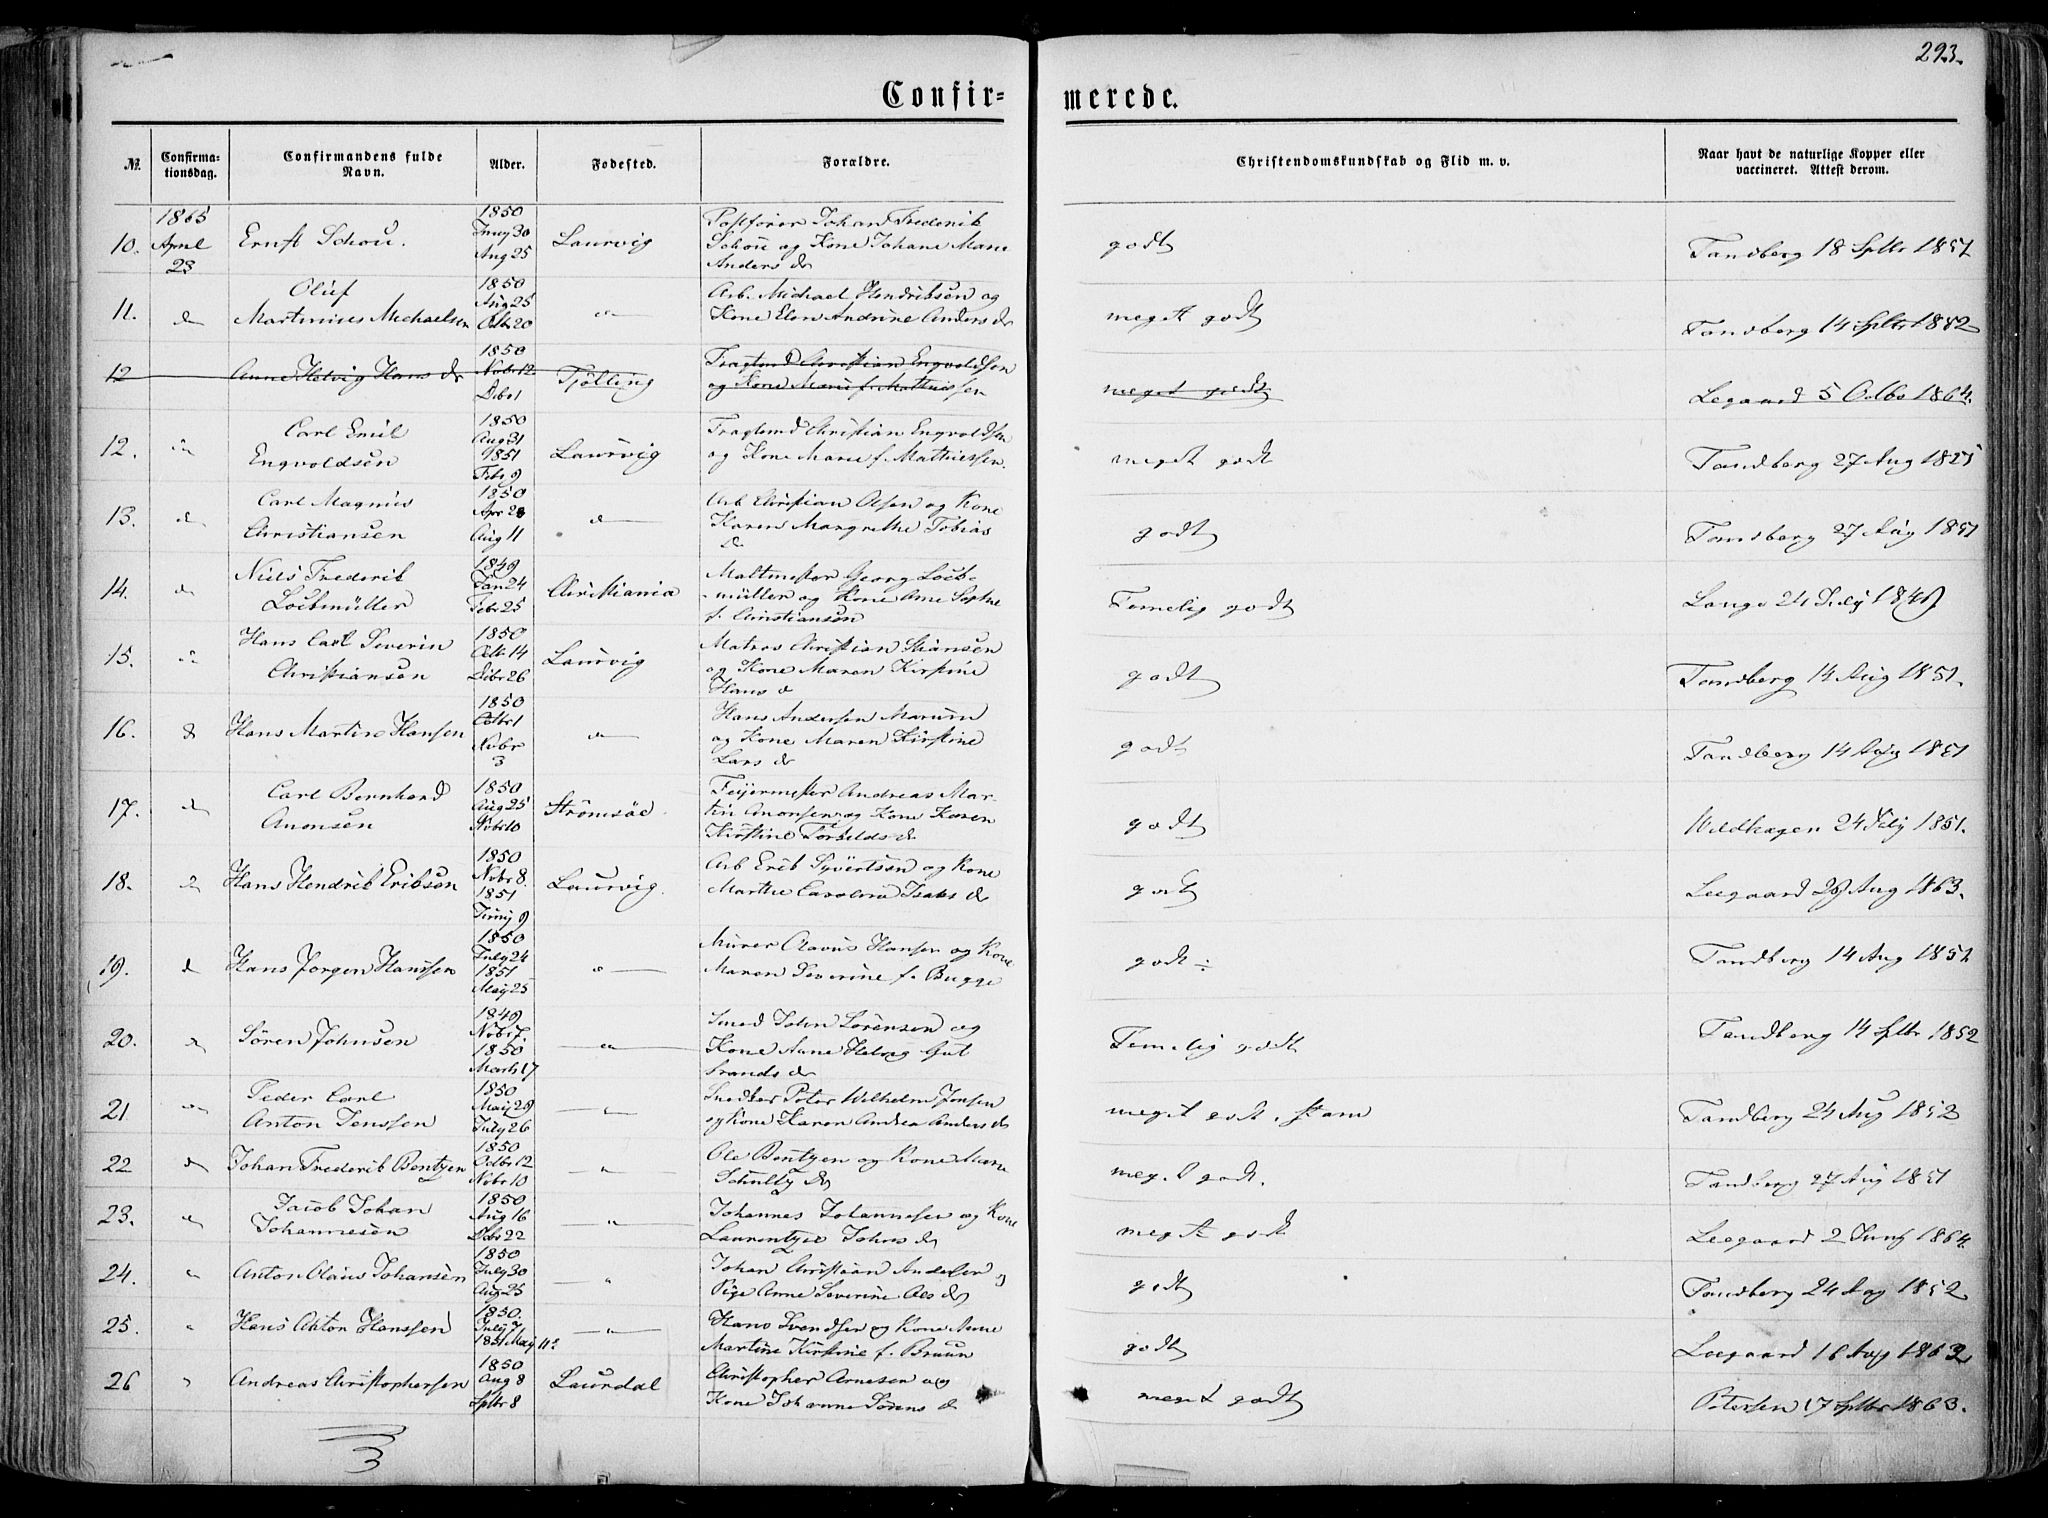 293.
Confir-
merede.
№
Confirma-
tionsdag.
Confirmandens fulde
Navn.
Alder.
Fødested.
Forældre.
Christendomskundskab og Flid m. v.
Naar havt de naturlige Kopper eller
vaccineret. Attest derom.
1865
10. April
23
Ernst Schou.
1850
Juny 30
Aug 25
Laurvig
Postfører Johan Frederik
Schou og Kone Johane Marie
Anders d
godt
Tandberg 18 Sptbr 1851
11. d
Oluf
Martinius Michaelsen
1850
Aug 25
Octbr 20
Arb. Michael Hendriksen og
Kone Elen Andrine Anders d
meget godt
Tandberg 14 Sptbr 1852
12
Anne Helvig Hans d
1850
Nobr 12
Debr 1
Tjølling
Fragtmd Christian Engvoldsen
og Kone Marie f. Mathiessen
meget godt
Legaard 5 Octbr 1864.
12.
Carl Emil
Engvoldsen
1850
Aug 31
1851
Febr 9
Laurvig
Fragtmd Christian Engvoldsen
og Kone Marie f. Mathiessen.
meget godt
Tandberg 27 Aug 1851
13. d
Carl Magnus
Christiansen
1850
Apr 28
Aug 11
d
Arb Christian Olsen og Kone
Karen Margrethe Tobias
d
godt
Tandberg 27 Aug 1851
14. d
Niels Frederik
Loebmüller
1849
Jan 24
Febr 25
Christiania
Maltmester Georg Loeb-
müller og Kone Ane Sophie
f. Christiansen
Temelig godt
Lange 24 July 1849
15.
Hans Carl Severin
Christiansen
1850
Octbr 14
Debr 26
Laurvig
Matros Christian Stiansen
og Kone Maren Kirstine
Hans d
godt
Tandberg 14 Aug 1851.
16. d
Hans Martin Hansen
1850
Octbr 1
Nobr
3
Hans Andersen
og Kone Maren Kirstine
Lars d
godt
Tandberg 14 Aug 1851
17. d
Carl Bernhard
Anonsen
1850
Aug 25
Nobr 10
Strømsøe
Feiermester Andreas Mar-
tin Anonsen og Kone Karen
Kirstine Torkilds d
godt
Weldhagen 24 July 1851.
18. d
Hans Hendrik Eriksen
1850
Nobr 8.
1851
Juny 9
Laurvig.
Arb Erik Syvertsen og Kone
Marthe Caroline Isaks d
godt
Leegaard 29 Aug 1863.
19. d
Hans Jørgen Hanssen
1850
July 24
1851
May 25
Murer Olavus Hansen og Kone
Maren Severine f. Bugge
godt
Tandberg 14 Aug 1852
20. d
Søren Johnsen
1849
Nobr 7.
1850
Marts 17
Smed John Sørensen og
Kone Anne Helvig Gul
brands d
Temelig godt
Tandberg 14 Sptbr 1852
21
Peder Carl
Anton Jenssen
1850
May 29
July 26
Snedker Peter Wilhelm Jensen
og Kone Karen Andrea Anders d
meget godt
Tandberg 24 Aug 1852
22 d
Johan Frederik Bentzen
1850
Octbr 12
Nobr 10
Ole Bentzen og Kone Maren
Schultz d
meget godt.
Tandberg 27 Aug 1851
23.
Jacob Johan
Johannesen
1850
Aug 16
Debr 22
Johannes Johannesen og Kone
Laurentze Johns d
meget godt
Leegaard 2 Juny 1864.
24.
Anton Olaus Johansen
1850
July 30
Aug 25
Johan Christian Andersen og
Pige Anne Severine Ols d
godt
Tandberg 24 Aug 1852
25.
Hans Anton Hanssen
1850
July 7
1851 May 11
Hans Svendsen og Kone Anne
Martine Kirstine f. Bruun
godt
Leegaard 16 Aug 1863
26
Andreas Christophersen
1850
Aug 8
Sptbr 8
Laurdal
Christopher Arnesen og
Kone Johanne Sørens d
meget godt
Petersen 17 Sptbr 1863.